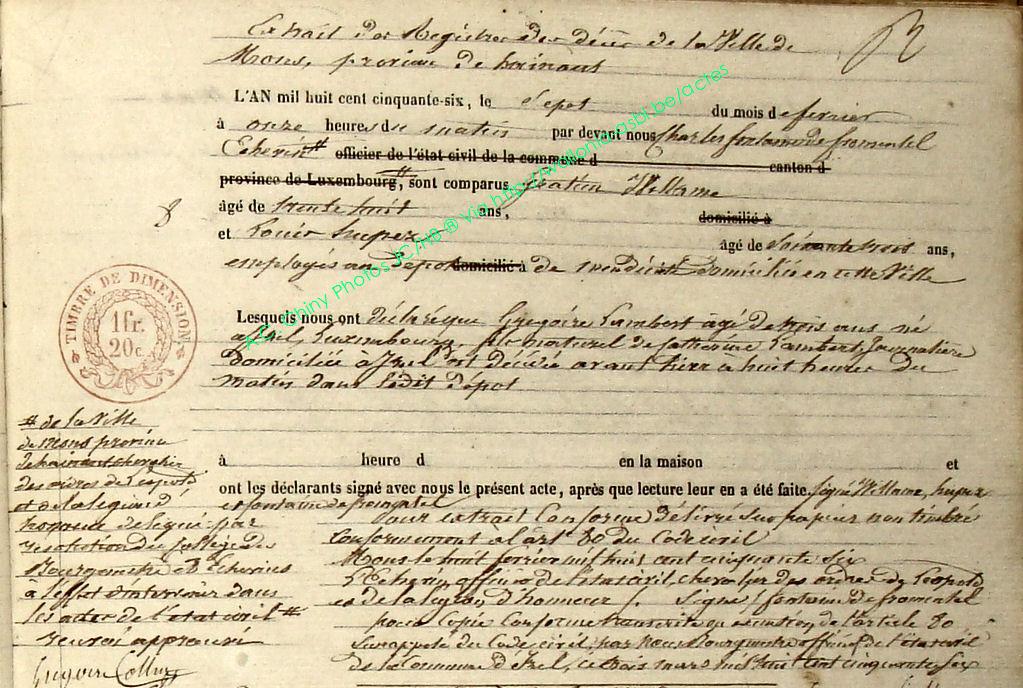 Extrait des Registres des décès de la Ville de
Mons, province de hainaut
L'AN mil huit cent cinquante-six, le Sept du mois de fevrier
à onze heures du matin par devant nous Charles fontaine de fromentel
Echevin # officier de l'état civil de la commune d canton d
province de Luxembourg, # sont comparus Wellame
âgé de trente huit ans, domicilié à
et Louis hupez âgé de soixante trois ans,
employés au dépot domicilié à de mendicité domiciliés en cette Ville
Lesquels nous ont déclaré que Grégoire Lambert âgé de trois ans né
à Izel, Luxembourg, fils naturel de Catherine Lambert, Journalière
Domiciliée à Izel est décédé avant hier à huit heures du
matin dans ledit dépot
à heure d en la maison et
ont les déclarants signé avec nous le présent acte, après que lecture leur en a été faite signé Wellame, hupez
et fontaine de fromentel
Pour extrait Conforme délivré sur papier non timbré
conformement à l'art 80 du Code civil
Mons le huit fevrier mil huit cent cinquante six
L'Echevin, officier de l'état civil, chevalier des ordres de Leopold
et de la légion d'honneur /. Signé / fontaine de fromentel
pour Copie Conforme transcrite en exécution de l'article 80
du Code civil, par nous Bourgmestre officier de l'état civil
de la commune d'Izel, ce trois mars mil huit cent cinquante six
TIMBRE DE DIMENSION
1 fr.
20 c.
# de la Ville
de mons province
de hainaut chevalier
des ordres de Leopold
et de la légion d'
honneur délégué par
résolution du collège des
Bourgmestre et Echevins
à l'effet d'intervenir dans
les actes de l'état civil #
renvoi approuvé
A.C. Chiny Photos JC/HB ® Via http://walloniaasbl.be/actes